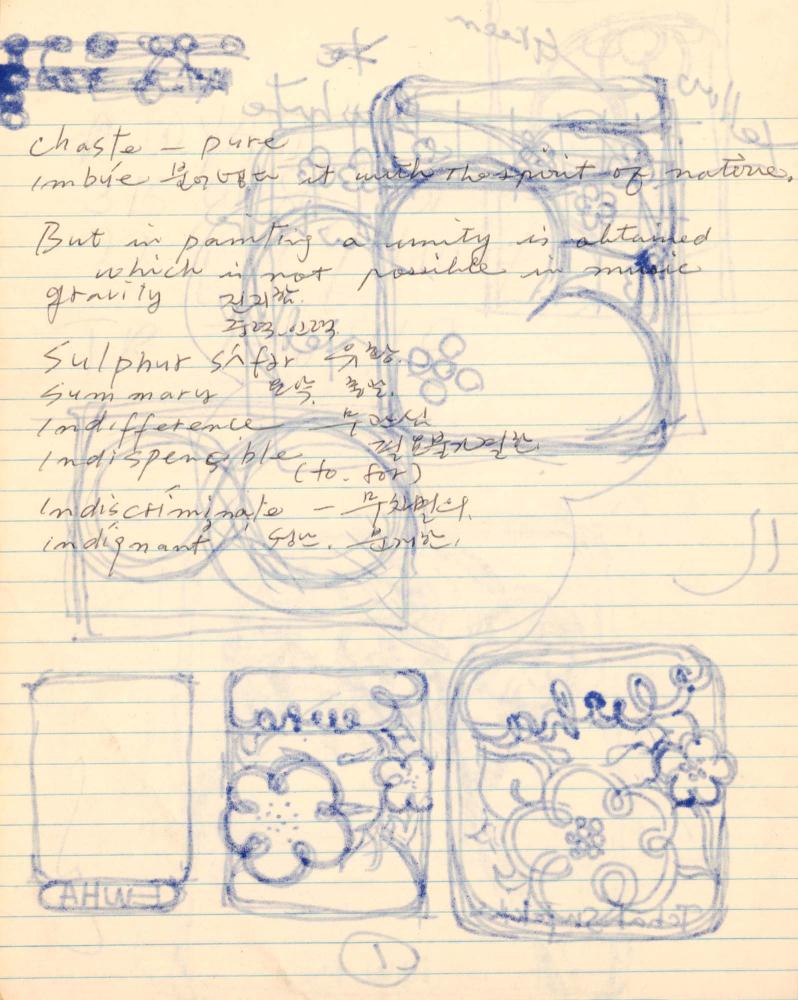 chaste — pure
imbue 불어넣다 it with the spirit of nature.
But in painting a unity is obtained
which is not possible in music
gravity 진지함.
중력. 인력.
Sulphur sʌ́lfər 유황.
Summary 요약, 총괄.
Indifference 무관심
Indispensible 필요불가결한.
(to. for)
Indiscriminate — 무차별의.
indignant 성난. 분개한.
Green
Yellow
Ewha
Ewha
EWHA
1